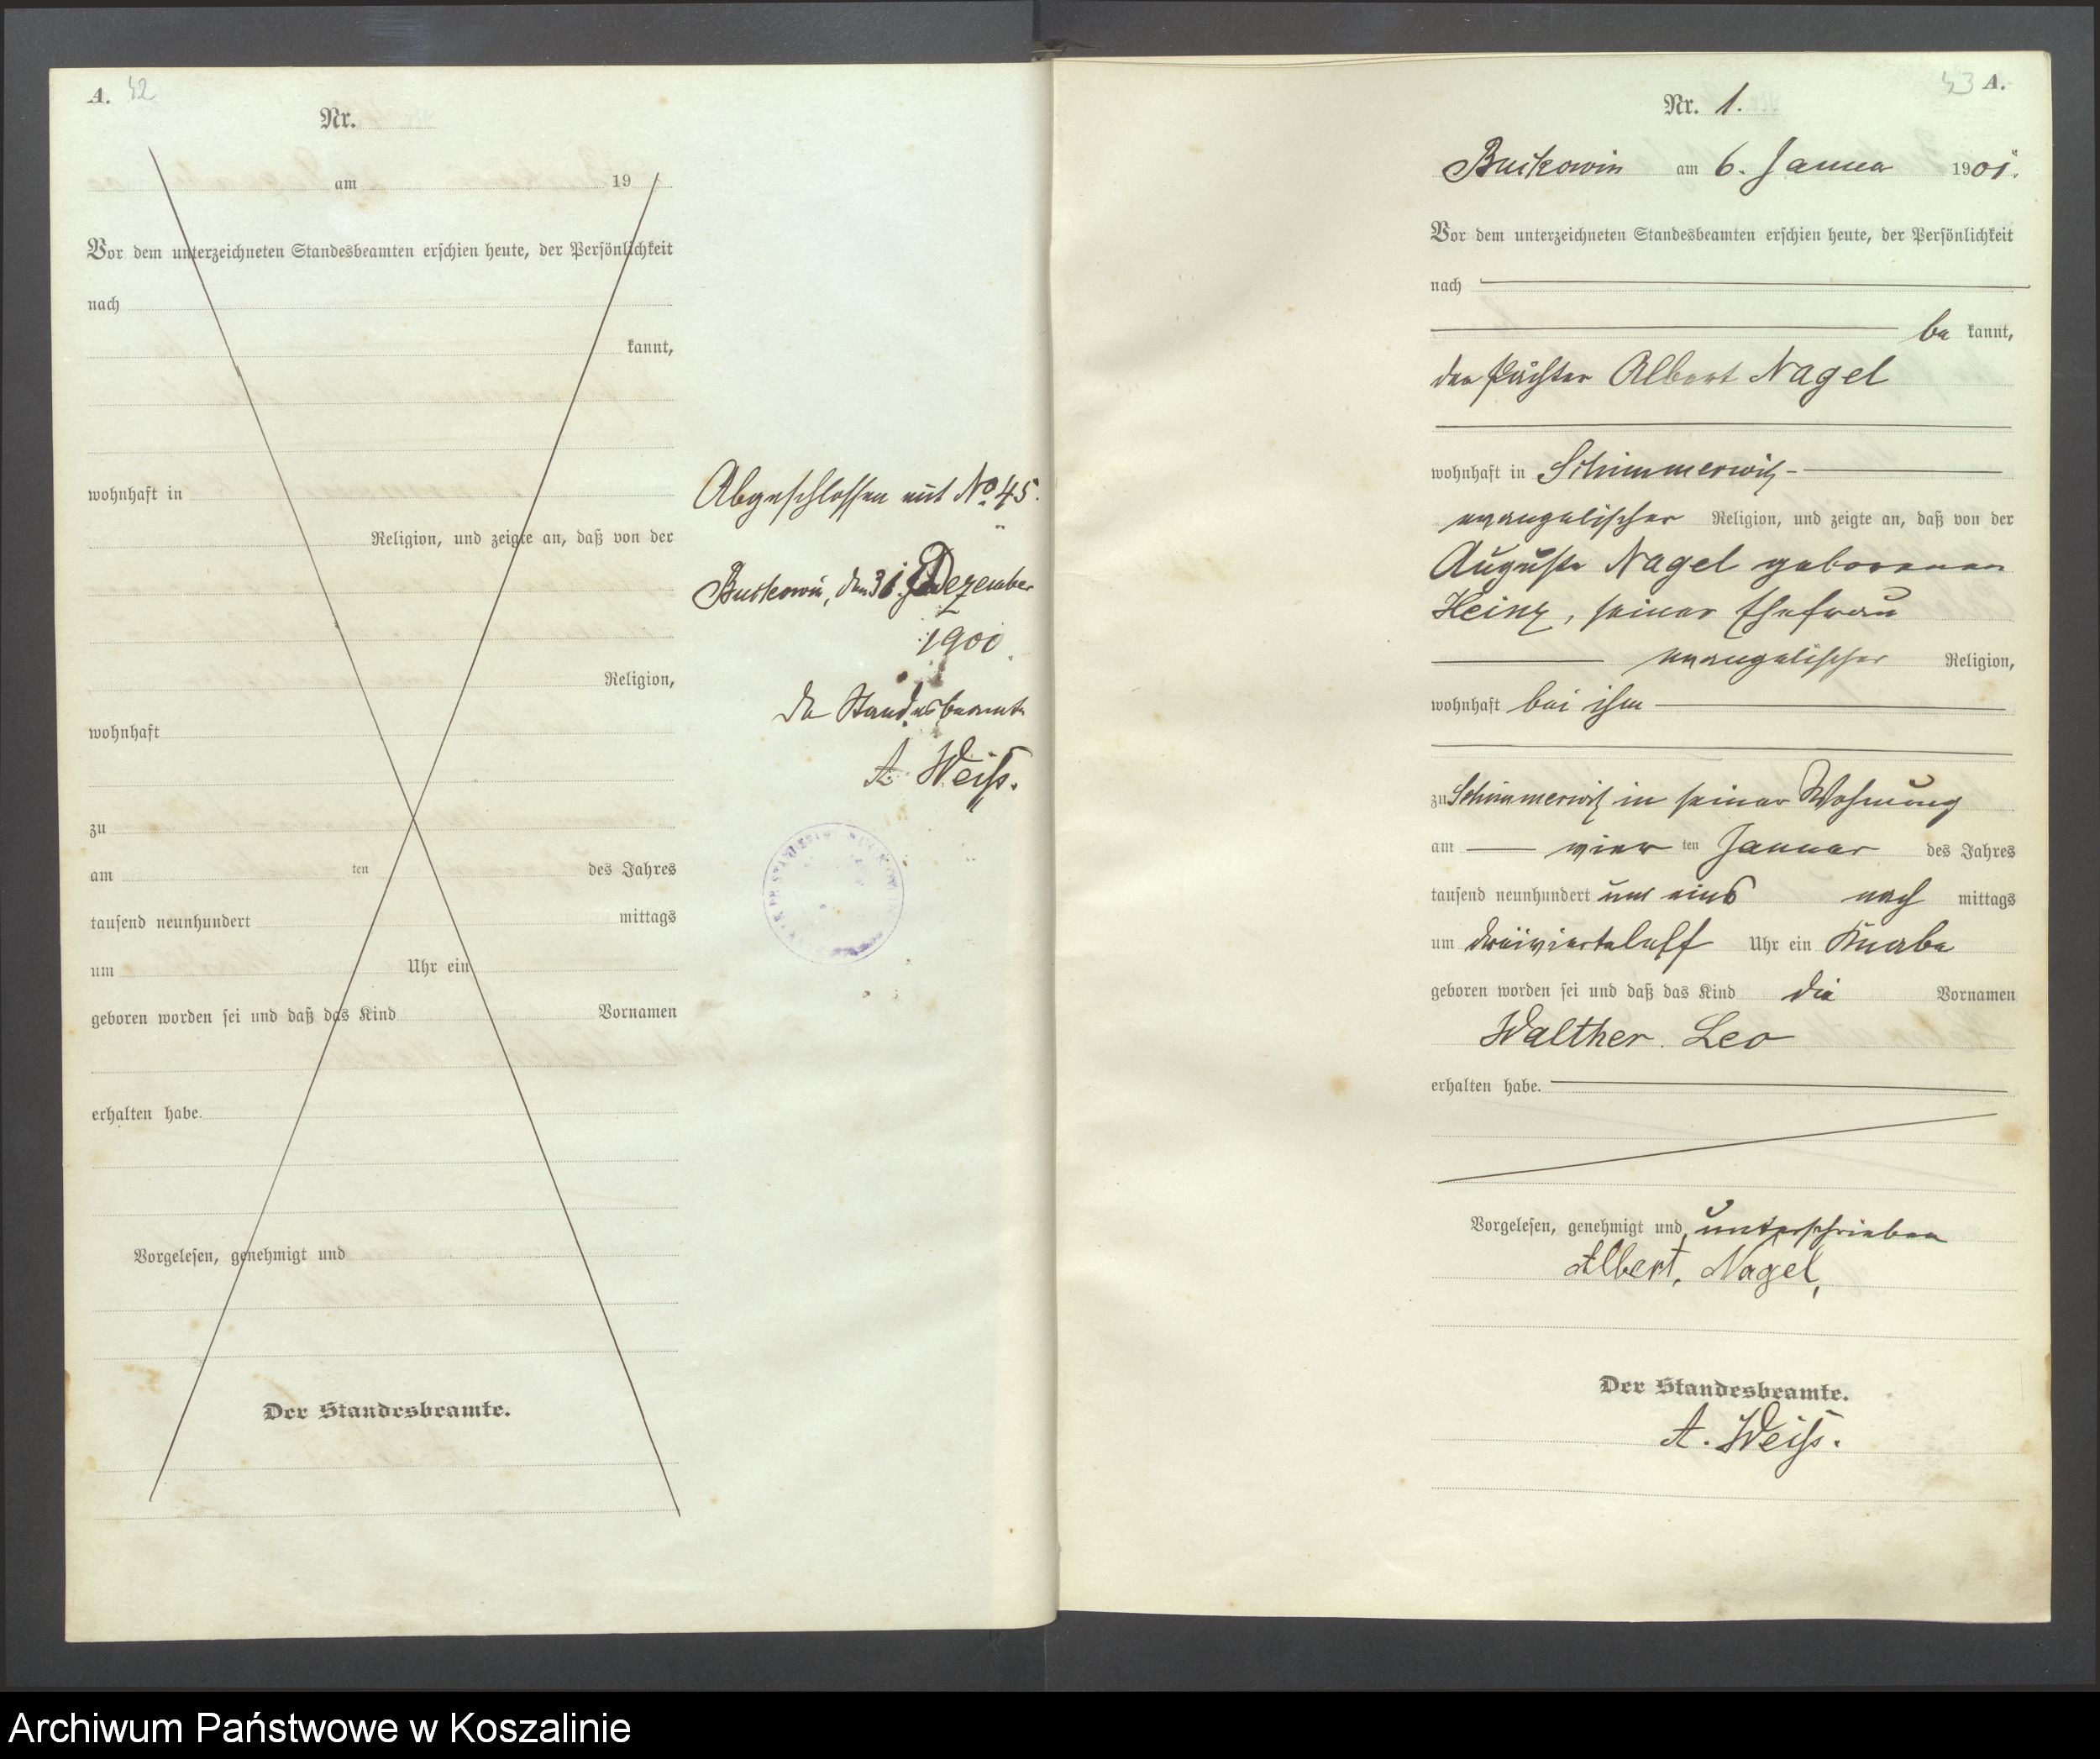 A. 42
Nr.
am 19
Vor dem unterzeichneten Standesbeamten erschien heute, der Persönlichkeit
nach
kannt,
wohnhaft in
Religion, und zeigte an, daß von der
Religion,
wohnhaft
zu
am ten des Jahres
tausend neunhundert mittags
um Uhr ein
geboren worden sei und daß das Kind Vornamen
erhalten habe.
Vorgelesen, genehmigt und
Der Standesbeamte.
Abgeschlossen mit No. 45.
Buckowin, den 31. Dezember
1900
Der Standesbeamte
A. Weiß.
43 A.
Nr. 1.
Buckowin am 6. Januar 1901.
Vor dem unterzeichneten Standesbeamten erschien heute, der Persönlichkeit
nach
be kannt,
der Pächter Albert Nagel
wohnhaft in Schimmerwitz
evangelischer Religion, und zeigte an, daß von der
Auguste Nagel geborenen
Heinz, seiner Ehefrau
evangelischer Religion,
wohnhaft bei ihm
zu Schimmerwitz in seiner Wohnung
am vier ten Januar des Jahres
tausend neunhundert und eins nach mittags
um dreiviertelelf Uhr ein Knabe
geboren worden sei und daß das Kind die Vornamen
Walther Leo
erhalten habe.
Vorgelesen, genehmigt und unterschrieben
Albert, Nagel,
Der Standesbeamte.
A. Weiß.
Archiwum Państwowe w Koszalinie